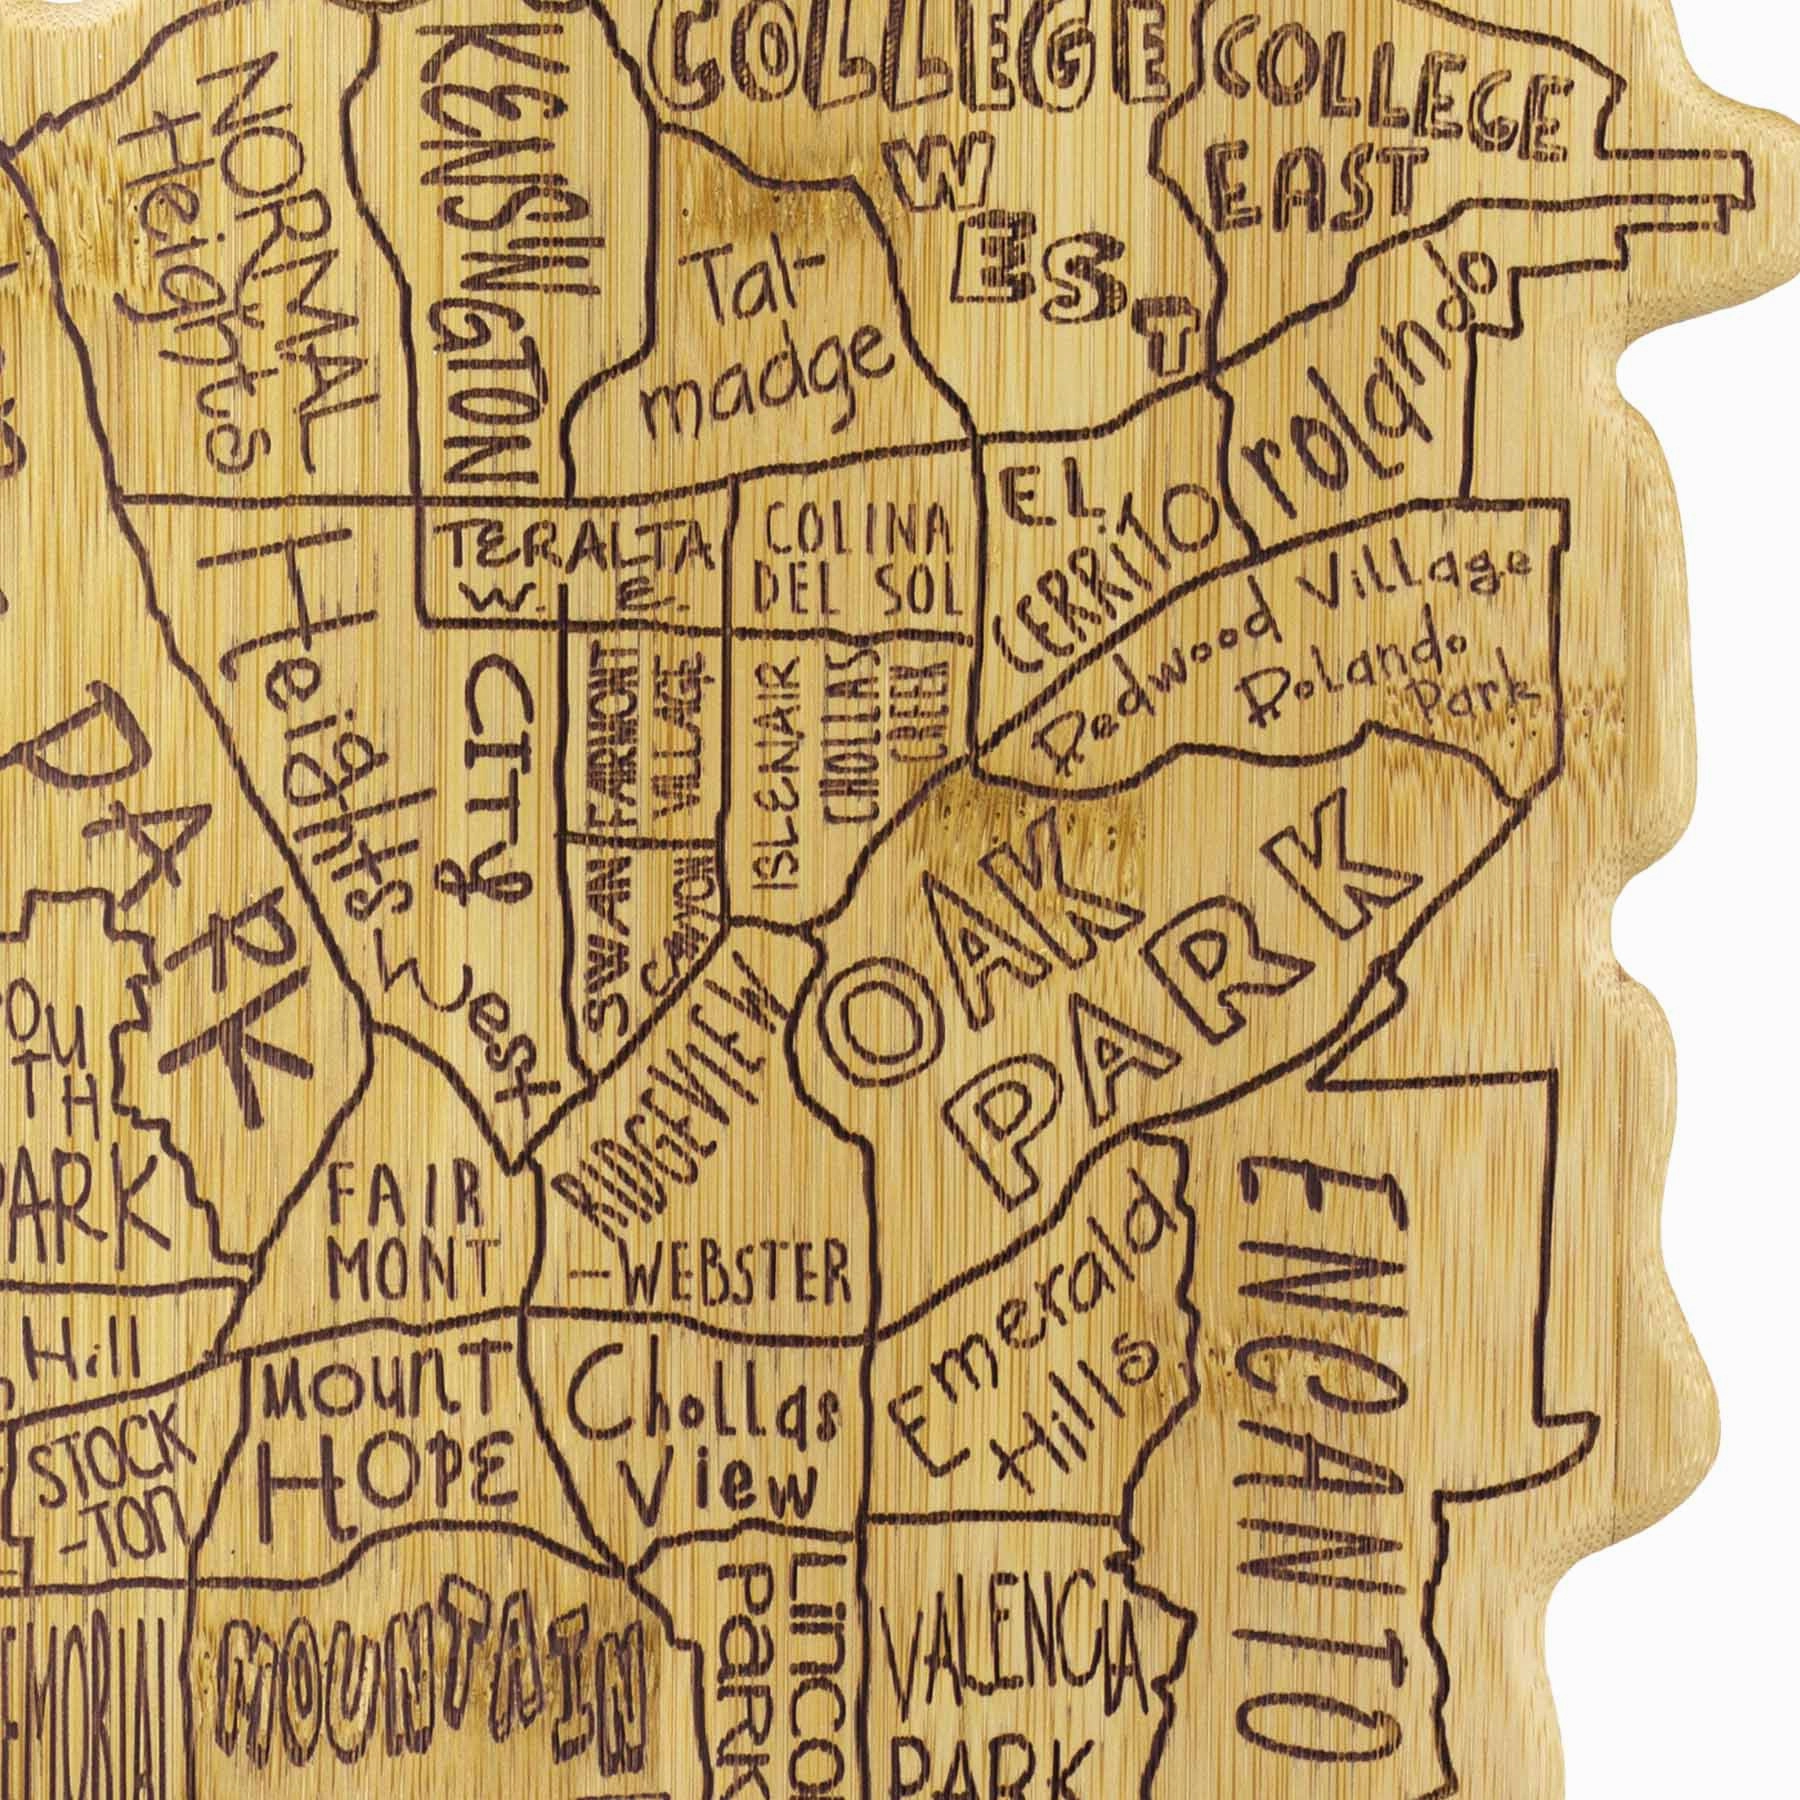 COLLEGE
WEST
COLLEGE
EAST
KENSINGTON
NORMAL
Heights
Tal-
madge
rolando
EL
CERRITO
TERALTA
W. E.
COLINA
DEL SOL
Redwood Village
Rolando
Park
Heights West
CITY
FAIRMONT
VILLAGE
ISLENAIR
CHOLLAS
CREEK
SWAN
CANYON
PARK
OAK
PARK
RIDGEVIEW
-WEBSTER
PARK
FAIR
MONT
Emerald
Hills
ENCANTO
Hill
MOUNT
HOPE
Chollas
View
STOCK
-TON
MOUNTAIN
LINCO
PARK
VALENCIA
PARK